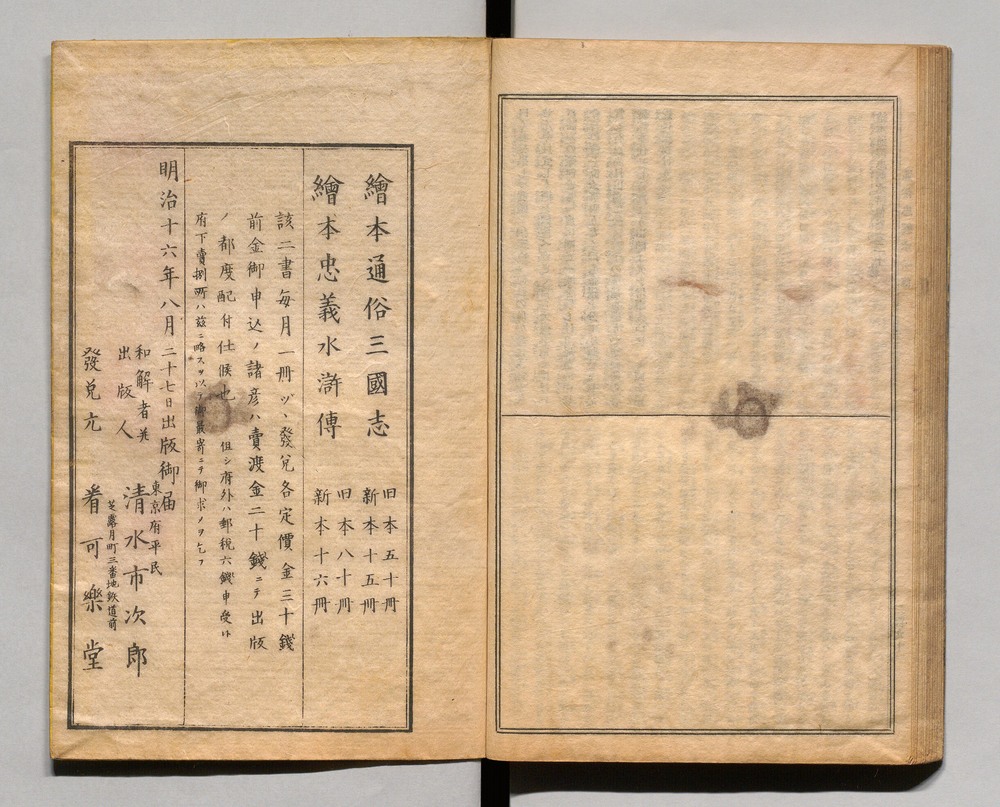 繪本通俗三國志
旧本五十冊
新本十五冊
繪本忠義水滸傳
旧本八十冊
新本十六冊
該二書毎月一冊ヅヽ發兌各定價金三十錢
前金御申込ノ諸彦ハ賣渡金二十錢ニテ出版
ノ都度配付仕候也 但シ府外ハ郵税六錢申受ルﾄ
府下賣捌所ハ茲ニ略スヲ以テ御最寄ニテ御求ノヲ乞フ
明治十六年八月二十七日出版御届
和解者並
出版人
東京府平民
清水市次郎
芝露月町三番地鉄道前
發兌元 着可樂堂